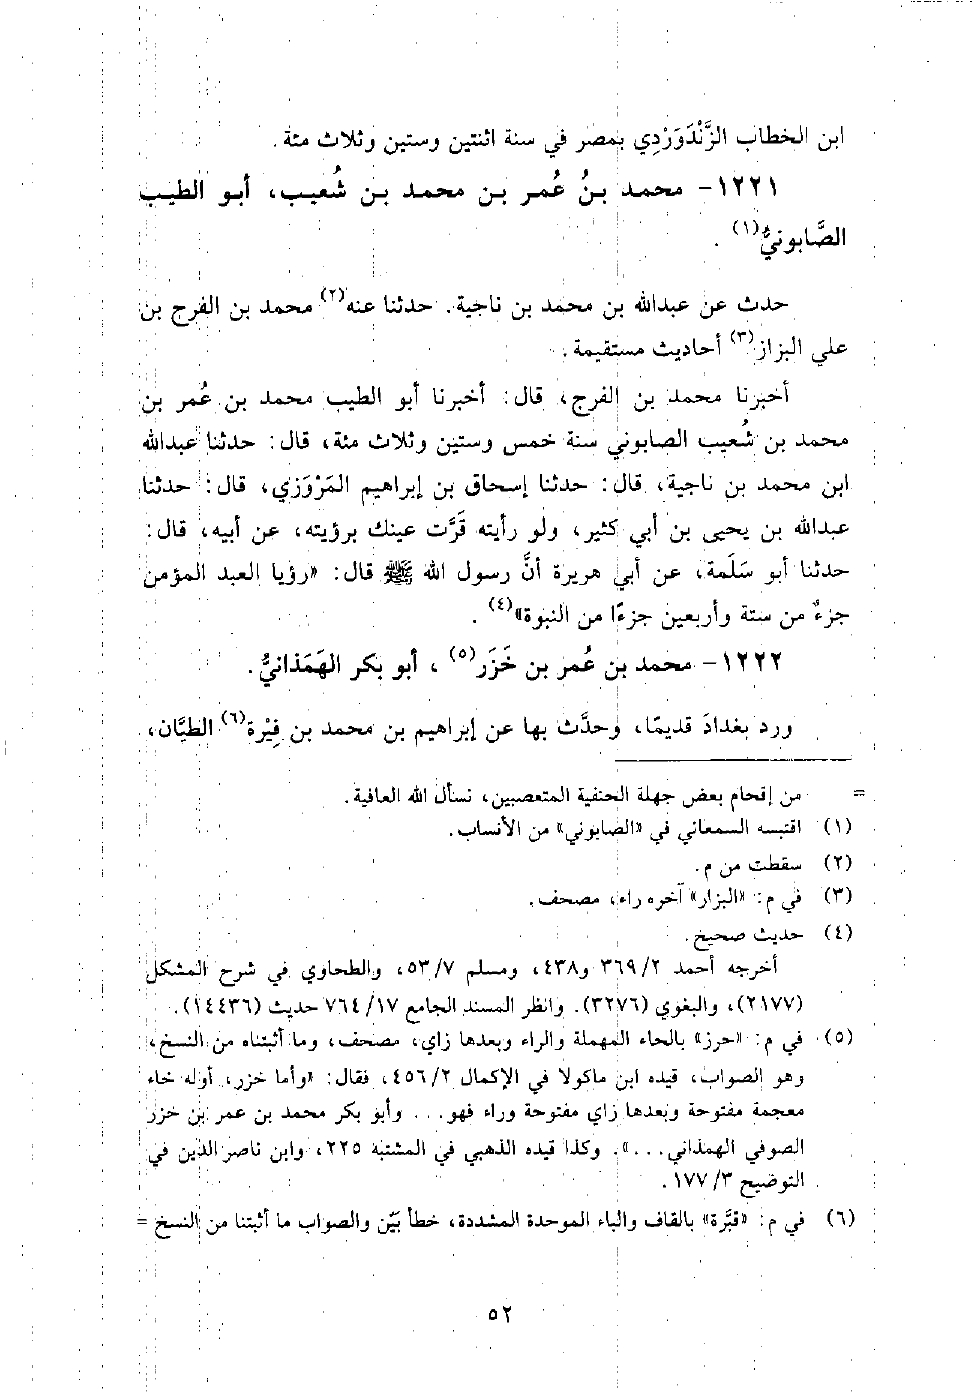 ابن الخطاب الزَّنْدَوَرْدِي بمصر في سنة اثنتين وستين وثلاث مئة.
١٢٢١- محمد بنُ عُمر بن محمد بن شُعيب، أبو الطيب
الصَّابونيُّ(١).
حدث عن عبدالله بن محمد بن ناجية. حدثنا عنه(٢) محمد بن الفرج بن
علي البزاز(٣) أحاديث مستقيمة.
أخبرنا محمد بن الفرج، قال: أخبرنا أبو الطيب محمد بن عُمر بن
محمد بن شُعيب الصابوني سنة خمس وستين وثلاث مئة، قال: حدثنا عبدالله
ابن محمد بن ناجية، قال: حدثنا إسحاق بن إبراهيم المَرْوَزي، قال: حدثنا
عبدالله بن يحيى بن أبي كثير، ولو رأيته قَرَّت عينك برؤيته، عن أبيه، قال:
حدثنا أبو سَلَمة، عن أبي هريرة أنَّ رسول الله ﷺ قال: «رؤيا العبد المؤمن
جزءٌ من ستة وأربعين جزءًا من النبوة»(٤).
١٢٢٢- محمد بن عُمر بن خَزَر(٥)، أبو بكر الهَمَذانيُّ.
ورد بغدادَ قديمًا، وحدَّث بها عن إبراهيم بن محمد بن فِيْرة(٦) الطيَّان،
= من إقحام بعض جهلة الحنفية المتعصبين، نسأل الله العافية.
(١) اقتبسه السمعاني في «الصابوني» من الأنساب.
(٢) سقطت من م.
(٣) في م: «البزار» آخره راء، مصحف.
(٤) حديث صحيح.
أخرجه أحمد ٢/ ٣٦٩ و٤٣٨، ومسلم ٧/ ٥٣، والطحاوي في شرح المشكل
(٢١٧٧)، والبغوي (٣٢٧٦). وانظر المسند الجامع ١٧/ ٧٦٤ حديث (١٤٤٣٦).
(٥) في م: «حرز» بالحاء المهملة والراء وبعدها زاي، مصحف، وما أثبتناه من النسخ،
وهو الصواب، قيده ابن ماكولا في الإكمال ٢/ ٤٥٦، فقال: «وأما خزر، أوله خاء
معجمة مفتوحة وبعدها زاي مفتوحة وراء فهو... وأبو بكر محمد بن عمر بن خزر
الصوفي الهمذاني...». وكذا قيده الذهبي في المشتبه ٢٢٥، وابن ناصر الدين في
التوضيح ٣/ ١٧٧.
(٦) في م: «قبَّرة» بالقاف والباء الموحدة المشددة، خطأ بيّن والصواب ما أثبتنا من النسخ =
٥٢